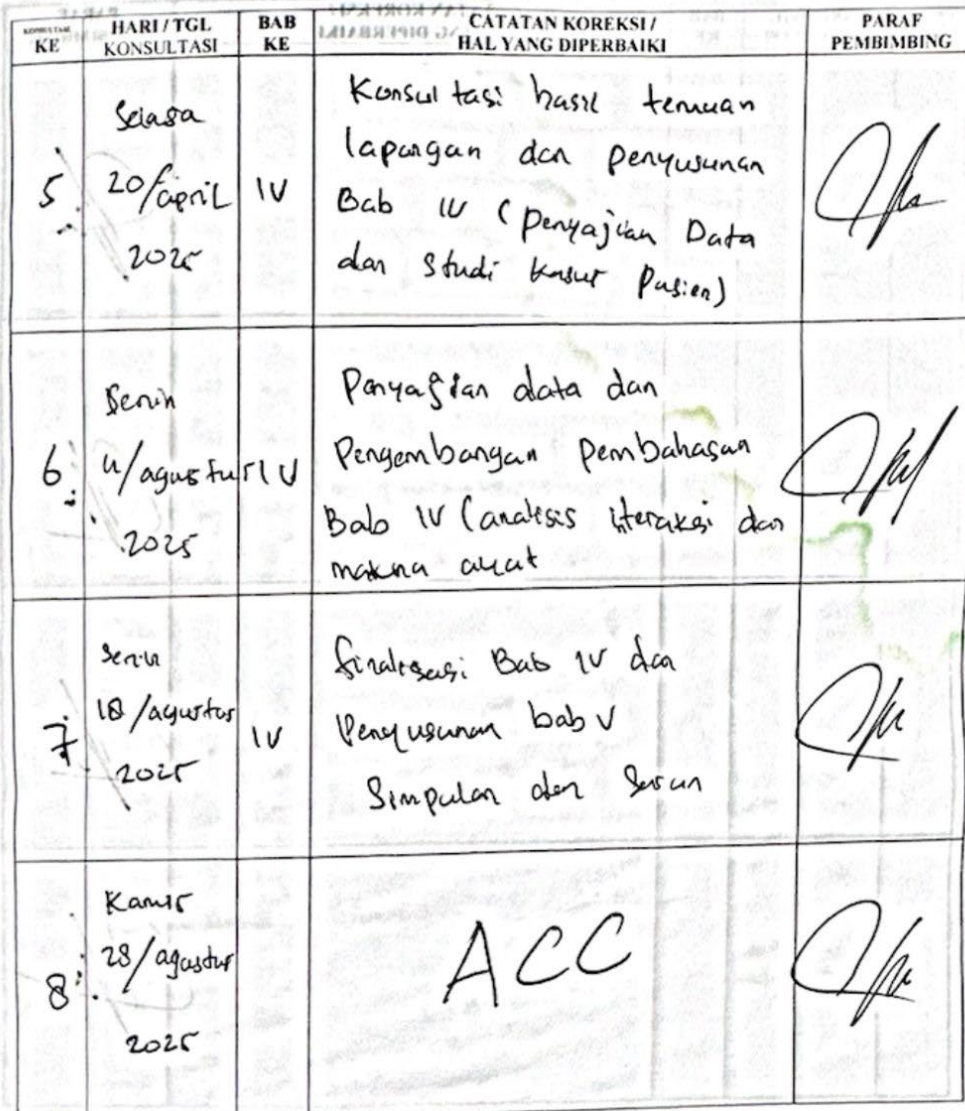 KONSULTASI KE
HARI / TGL KONSULTASI
BAB KE
CATATAN KOREKSI / HAL YANG DIPERBAIKI
PARAF PEMBIMBING
5
Selasa
20/april
2025
IV
Konsultasi hasil temuan
lapangan dan penyusunan
Bab IV (penyajian Data
dan Studi kasus Pasien)
6
Senin
4/agustus
2025
IV
Penyajian data dan
Pengembangan Pembahasan
Bab IV (analisis interaksi dan
makna ayat
7
Senin
18/agustus
2025
IV
finalisasi Bab IV dan
Penyusunan bab V
Simpulan dan Saran
8
Kamis
28/agustus
2025
ACC